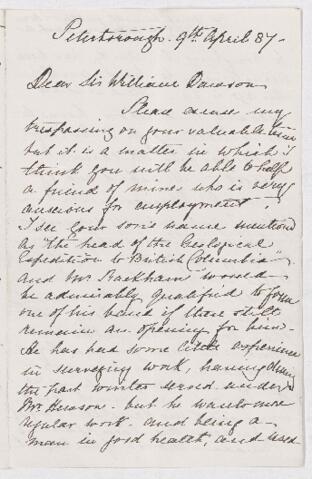 Peterborough. 9th April 87-
Dear Sir William Dawson
Please excuse my
trespassing on your valuable time
but it is a matter in which I
think you will be able to help
a friend of mine who is very
anxious for employment
I see your son's name mentioned
as "the head of the Geological
Expedition to British Columbia"
and Mr. Rackham would
be admirably qualified to form
one of his band if there still
remains an opening for him-
He has had some little experience
in surveying work, having during
the past winter served under
Mr. - but he wants more
regular work- and being a
man in good health, and used